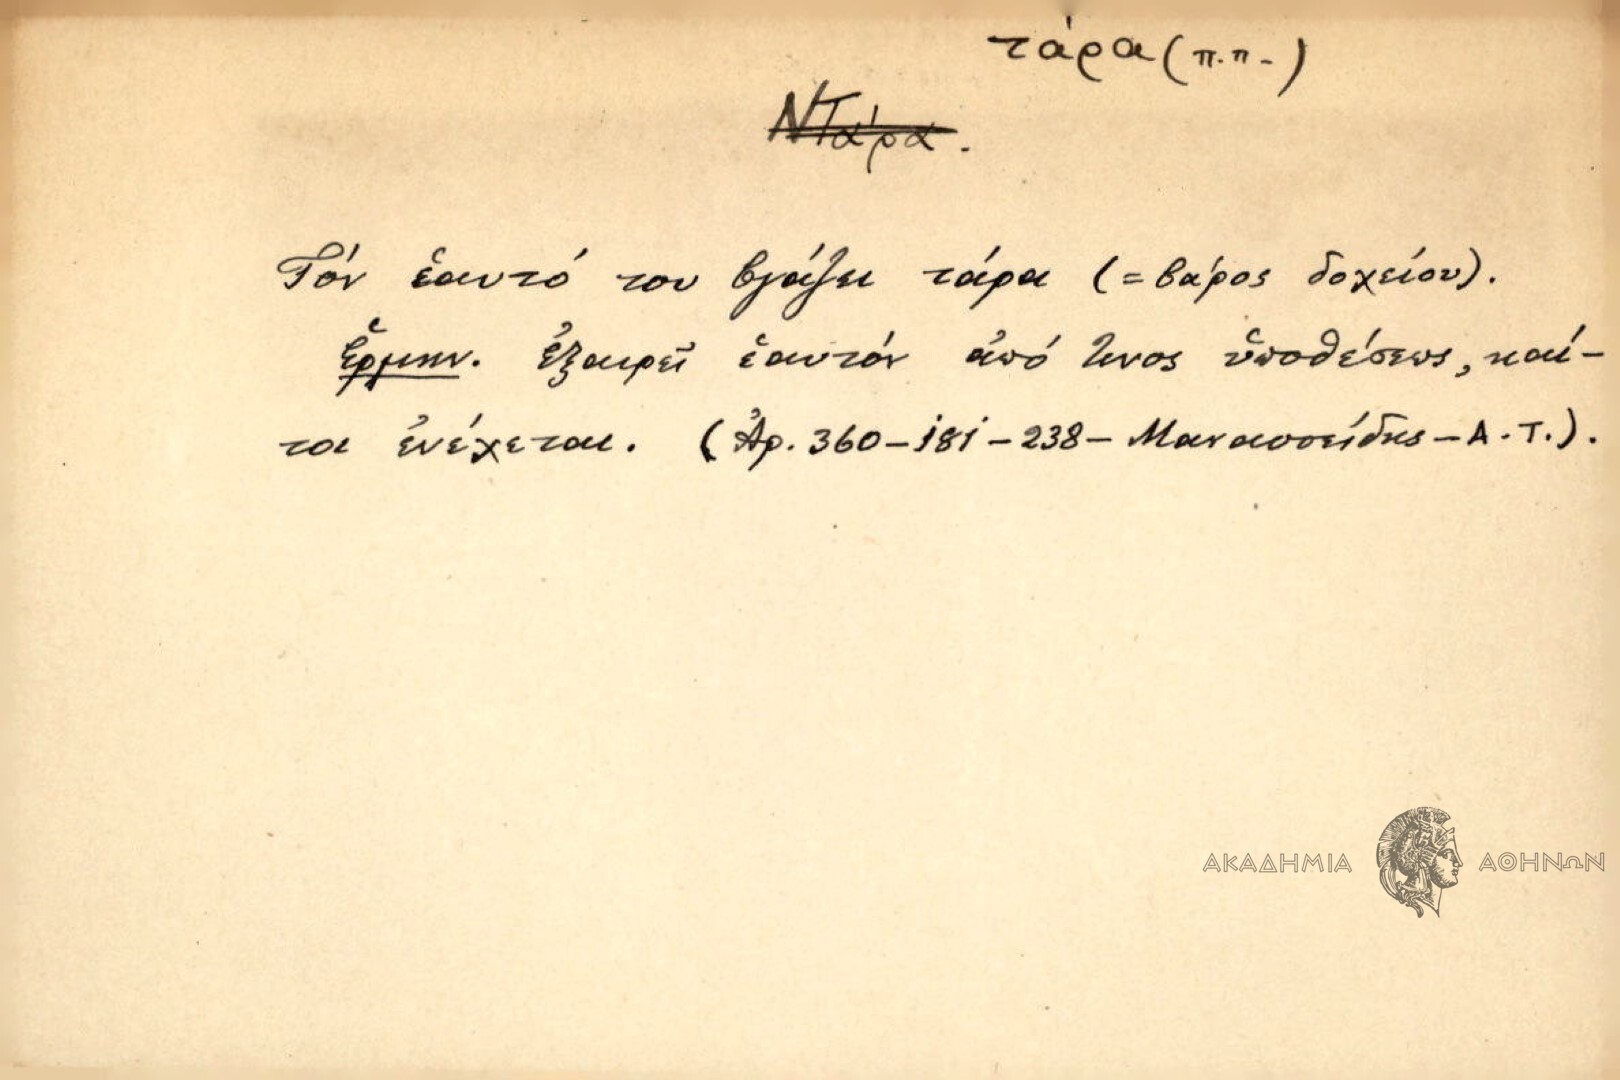 τάρα (π.π.)
Ντάρα.
Τόν ἑαυτό του βγάζει τάρα (= βάρος δοχείου).
Ἑρμην. ἐξαιρεῖ ἑαυτόν ἀπό τινος ὑποθέσεως, καί-
τοι ἐνέχεται. (Ἀρ. 360-181-238- Μανασσείδης - Α.Τ.).
ΑΚΑΔΗΜΙΑ ΑΘΗΝΩΝ